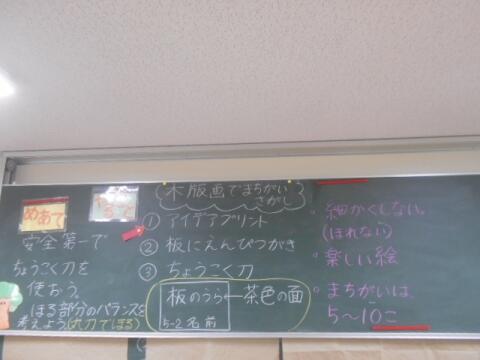 めあて
安全第一で
ちょうこく刀を
使おう。
ほる部分のバランスを
考えよう(丸刀でほる)
木版画でまちがい
さがし
① アイデアプリント
② 板にえんぴつがき
③ ちょうこく刀
板のうら←茶色の面
5-2 名前
・細かくしない。
(ほれない)
・楽しい絵
・まちがいは、
5〜10こ